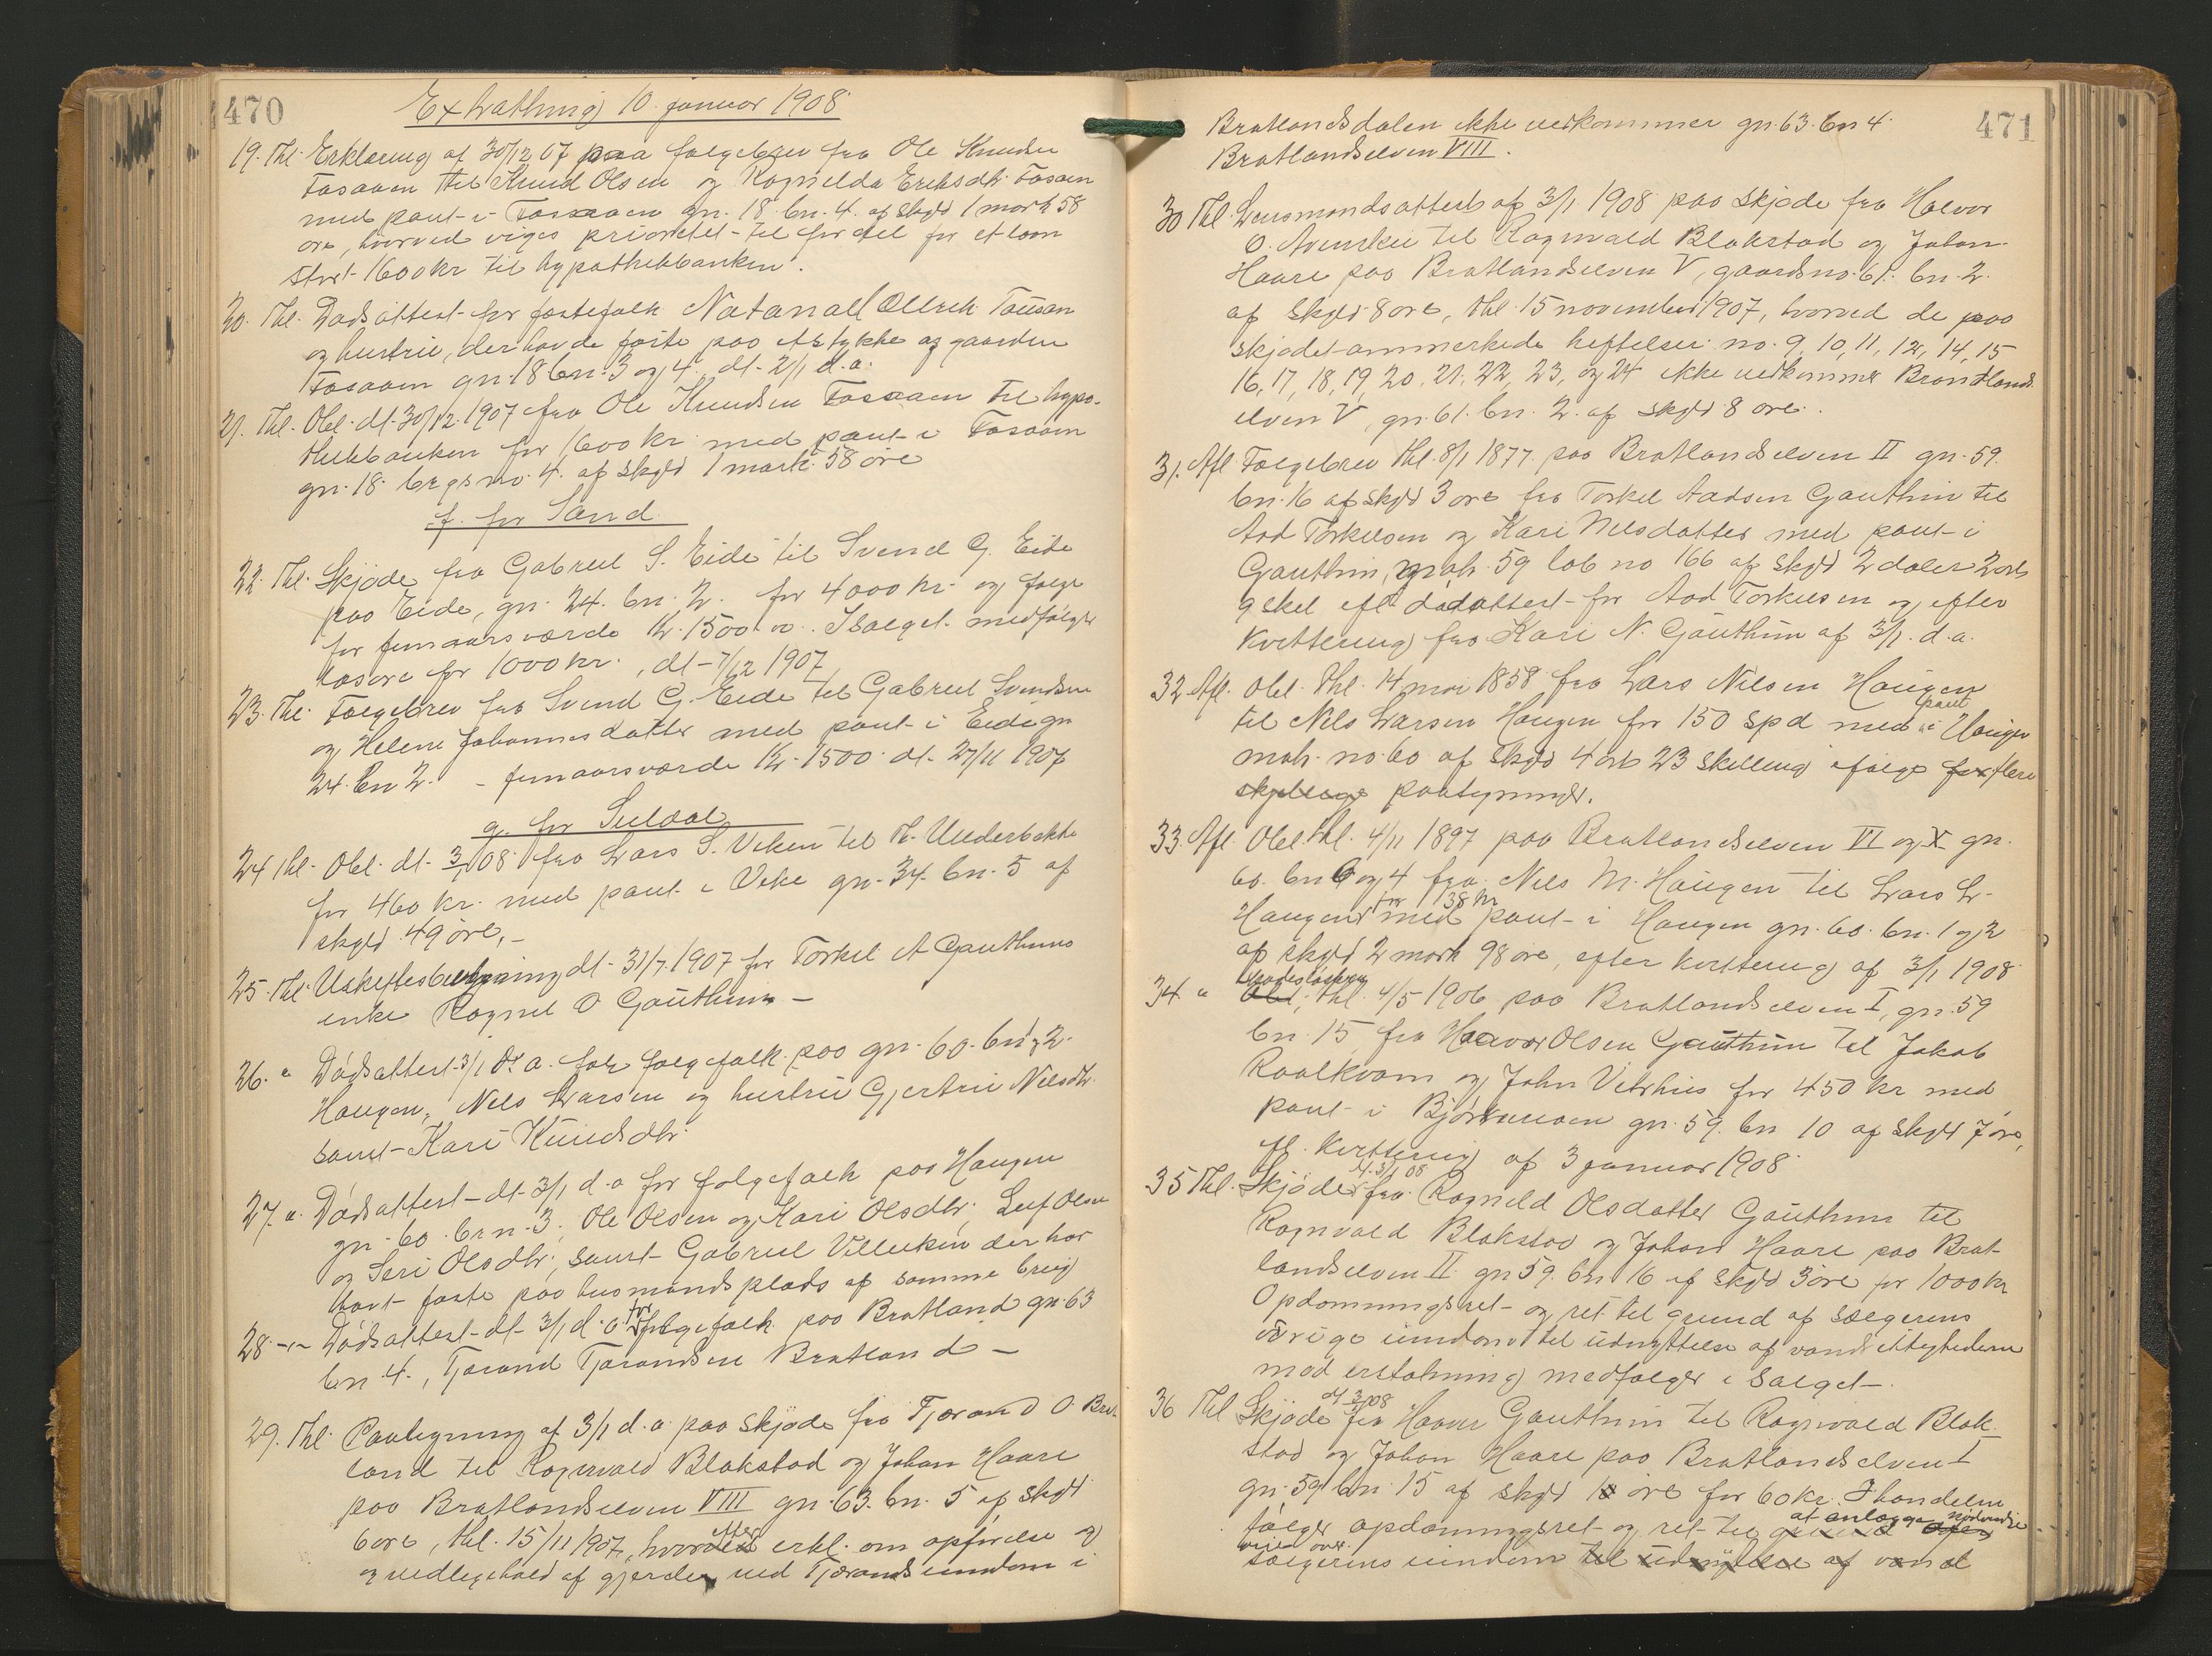 470
Extrathing 10 januar 1908
19. Thl. Erklæring af 30/12 07 paa følgebrev fra Ole Knudsen
Fosaaen til Knud Olsen og Ragnilda Eriksdtr. Fosaaen
med pant i Fosaaen gn. 18 bn. 4. af skyld 1 mark 58
øre, hvorved viges prioritet til fordel for et laan
stort 1600 kr til hypothekbanken.
20. Thl. Dødsattest for føstefolk Natanael Ellrik Tousan
og hustru, der havde føste paa et stykke af gaarden
Fosaaen gn. 18 bn. 3 og 4. dt. 2/1 d.a.
21. Thl. Obl. dt. 30/12 1907 fra Ole Knudsen Fosaaen til hypo-
thekbanken for 1600 kr med pant i Fosaaen
gn. 18. brgsno. 4. af skyld 1 mark 58 øre
f. for Sand
22. Thl. Skjøde fra Gabriel S. Eide til Svend G. Eide
paa Eide, gn. 24. bn. 2. for 4000 kr. og følge
for femaarsværde kr. 1500.00. I salget medfølger
løsøre for 1000 kr., dt. 7/12 1907
23. Thl. Følgebrev fra Svend G. Eide til Gabriel Svendsen
og Helene Johannesdatter med pant i Eide gn
24. bn 2. - femaarsværde kr. 1500 dt. 27/11 1907
g. for Suldal
24 Thl. Obl. dt. 3/1 08 fra Lars S. Veken til Th. Underbakke
for 460 kr. med pant i Veke gn. 34. bn. 5 af
skyld 49 øre,-
25. Thl. Uskiftesbevilgning dt. 31/7. 1907 for Torkel A Gauthuns
enke Ragnil O Gauthun -
26. " Dødsattest 3/1 d. a. for følgefolk paa gn. 60. bn 1 og 2.
Haugen, Nels Larsen og hustru Gjertrui Nilsdtr.
samt Kari Knudsdtr.
27. " Dødsattest dt. 3/1 d. a for følgefolk paa Haugen
gn. 60. brn. 3, Ole Olsen og Kari Olsdtr, Leif Olsen
og Seri Olsdtr, samt Gabriel Villeiken der har
havt føste paa husmandsplads af samme brug
28. -"- Dødsattest dt. 3/1 d. a. for følgefolk paa Bratland gn. 63
bn. 4., Tjerand Tjerandsen Bratland -
29. Thl. Paategning af 3/1 d. a paa skjøde fra Tjerand O. Brat-
land til Ragnvald Blakstad og Johan Haare
paa Bratlandselven VIII gn. 63. bn. 5 af skyld
6 øre, thl. 15/11 1907, hvorefter erkl. om opførelse og
og vedligehold af gjerder ved Tjerands eiendom i
471
Bratlandsdalen ikke vedkommer gn. 63. bn 4.
Bratlandselven VIII.
30 Thl. Lensmandsattest af 3/1 1908 paa skjøde fra Halvor
O. til Ragnvald Blakstad og Johan
Haare paa Bratlandselven V, gaardsno. 61. bn. 2.
af skyld 8 øre, thl. 15 november 1907, hvorved de paa
skjødet anmerkede heftelser no. 9, 10, 11, 12, 14, 15
16, 17, 18, 19, 20, 21, 22, 23, og 24 ikke vedkommer Bratlands-
elven V, gn. 61. bn. 2. af skyld 8 øre.
31. Afl. Følgebrev thl. 8/1 1877 paa Bratlandselven II gn. 59.
bn. 16 af skyld 3 øre fra Torkel Aadsen Gauthun til
Aad Torkelsen og Kari Nelsdatter med pant i
Gauthun, matr. 59 løb no 166 af skyld 2 daler 2 ort
9 skil efl. dødsattest for Aad Torkelsen og efter
kvittering fra Kari N. Gauthun af 3/1. d. a.
32. Afl. Obl. thl. 14 mai 1858 fra Lars Nilsen Haugen
til Nels Larsen Haugen for 150 spd med pant i Haugen
matr. no. 60 af skyld 4 ort 23 skelling ifølge for flere
skyldninge paategninger.
33. Afl. Obl. thl. 4/11 1897 paa Bratlandselven VI og X gn.
60. bn 6 og 4 fra Nels M. Haugen til Lars L.
Haugen for 138 kr med pant i Haugen gn. 60. bn. 1 og 2
af skyld 2 mark 98 øre, efter kvittering af 3/1 1908
34. " Obl. thl. 4/5 1906 paa Bratlandselven I, gn. 59
bn. 15 fra Haavar Olsen Gauthun til Jakob
Raalkvam og John Vetrhus for 450 kr med
pant i gn. 59. bn 10 af skyld 7 øre,
efl. kvittering af 3 januar 1908
35 Thl. Skjøde dt. 3/1 08 fra Ragnild Olsdatter Gauthun til
Ragnvald Blakstad og Johan Haare paa Brat-
landselven II gn. 59. bn 16 af skyld 3 øre for 1000 kr
Opdæmningsret og ret til grund af sælgerens
øvrige eiendom til udnyttelse af vandrettighederne
mod erstatning medfølger i salget -.
36 Thl Skjøde dt 3/1 08 fra Haavar Gauthun til Ragnvald Blak-
stad og Johan Haare paa Bratlandselven I
gn. 59 bn. 15 af skyld 1 øre for 60 kr. I handelen
følger opdæmningsret og ret til grund af at anlægge nødvendige
veie over
sælgerens eiendom til udnyttelse af vand